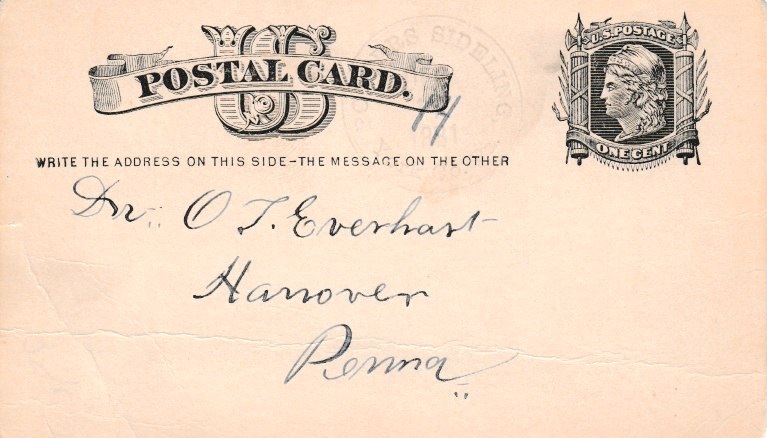 US
POSTAL CARD.
U.S. POSTAGE
ONE CENT
SIDELING,
14
WRITE THE ADDRESS ON THIS SIDE - THE MESSAGE ON THE OTHER
Dr. O T. Everhart
Hanover
Penna